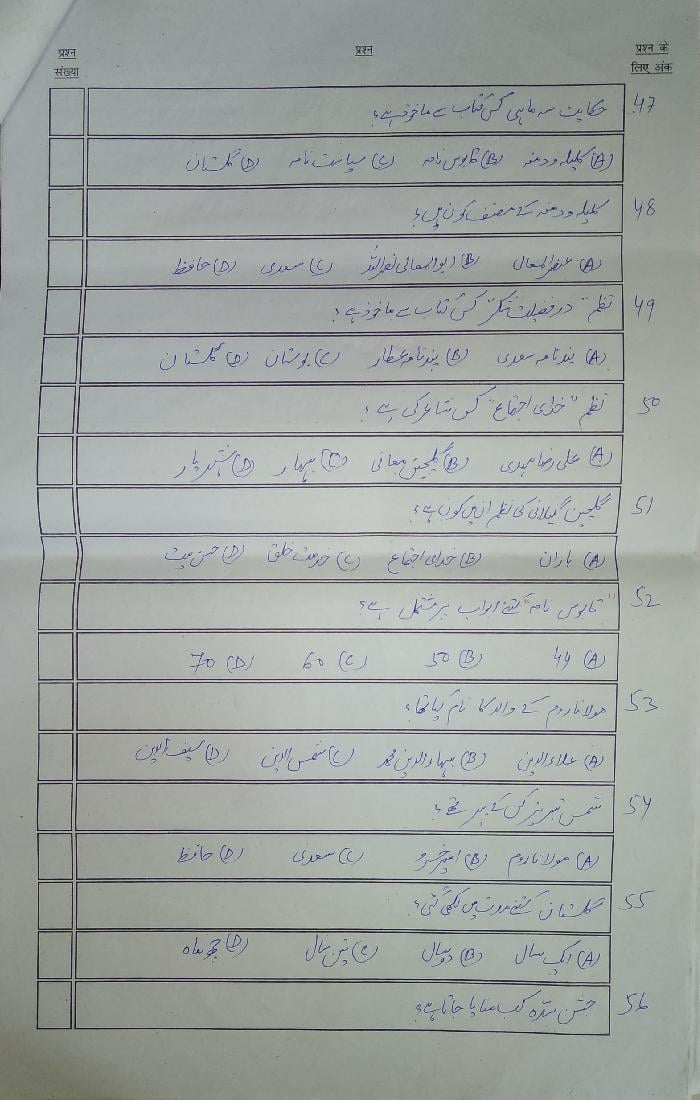 प्रश्न संख्या
प्रश्न
प्रश्न के लिए अंक
47 حکایت سہ ماہی کس کتاب سے ماخوذ ہے؟
(A) کلیلہ و دمنہ (B) قابوس نامہ (C) سیاست نامہ (D) گلستان
48 کلیلہ و دمنہ کے مصنف کون ہیں؟
(A) عنصرالمعالی (B) ابوالمعالی نصراللہ (C) سعدی (D) حافظ
49 نظم "در فضیلت شکر" کس کتاب سے ماخوذ ہے؟
(A) پندنامہ سعدی (B) پندنامہ عطار (C) بوستان (D) گلستان
50 نظم "خدای اجتماع" کس شاعر کی ہے؟
(A) علی رضا میدی (B) گلچین معانی (C) بہار (D) شہریار
51 گلچین گیلانی کی نظم ان میں کون ہے؟
(A) باران (B) خدای اجتماع (C) خدمت خلق (D) حسن نیت
52 "قابوس نامہ" کتنے ابواب پر مشتمل ہے؟
(A) 44 (B) 50 (C) 60 (D) 70
53 مولانا روم کے والد کا نام کیا تھا؟
(A) علاءالدین (B) بہاءالدین محمد (C) شمس الدین (D) سیف الدین
54 شمس تبریز کس کے پیر تھے؟
(A) مولانا روم (B) امیر خسرو (C) سعدی (D) حافظ
55 گلستان کتنے مدت میں لکھی گئی؟
(A) ایک سال (B) دو سال (C) تین سال (D) چھ ماہ
56 جشن سدہ کب منایا جاتا ہے؟